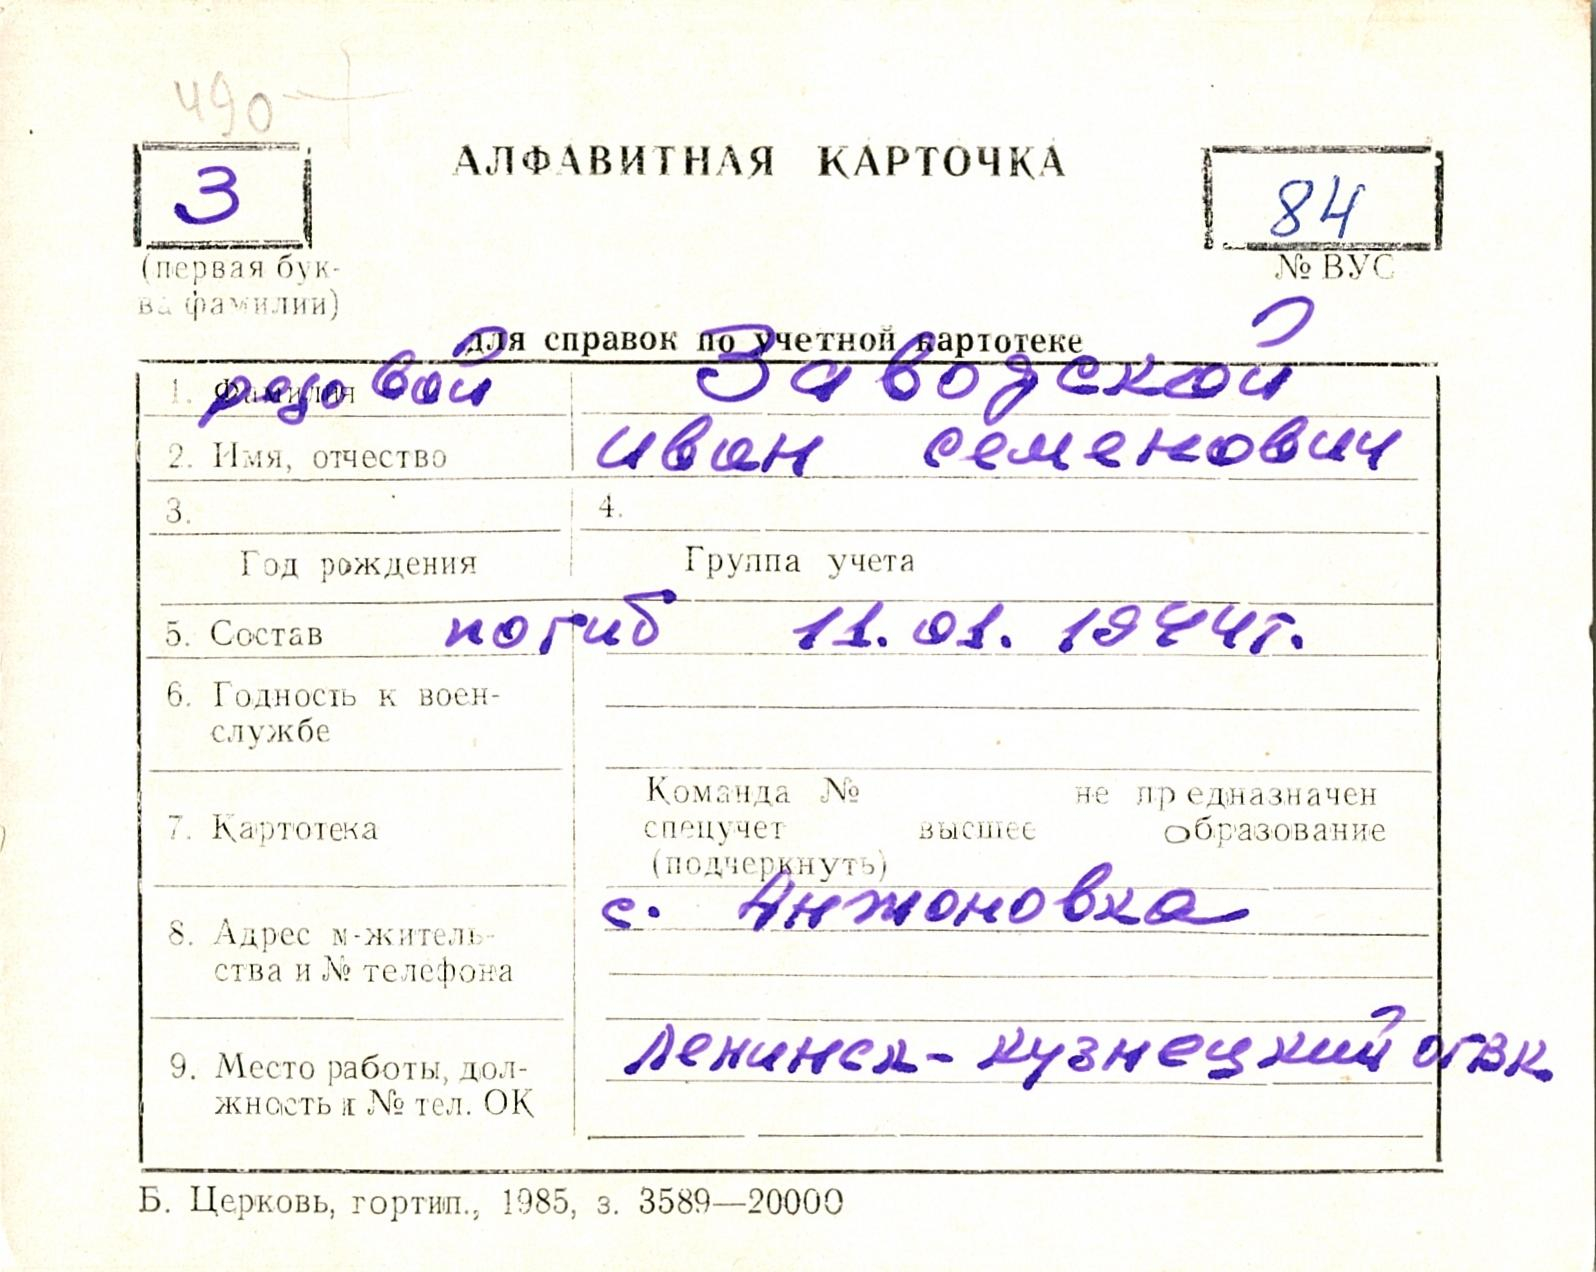 490
З
АЛФАВИТНАЯ КАРТОЧКА
84
(первая бук-
ва фамилии)
№ ВУС
для справок по учетной картотеке
1. Фамилия рядовой Заводской
2. Имя, отчество Иван Семенович
3. 4.
Год рождения Группа учета
5. Состав погиб 11.01.1944г.
6. Годность к воен-
службе
7. Картотека
Команда № не предназначен
спецучет высшее образование
(подчеркнуть)
8. Адрес м-житель-
ства и № телефона
с. Анжоновка
9. Место работы, дол-
жность и № тел. ОК
Ленинск-Кузнецкий ОГВК
Б. Церковь, гортип., 1985, з. 3589—20000